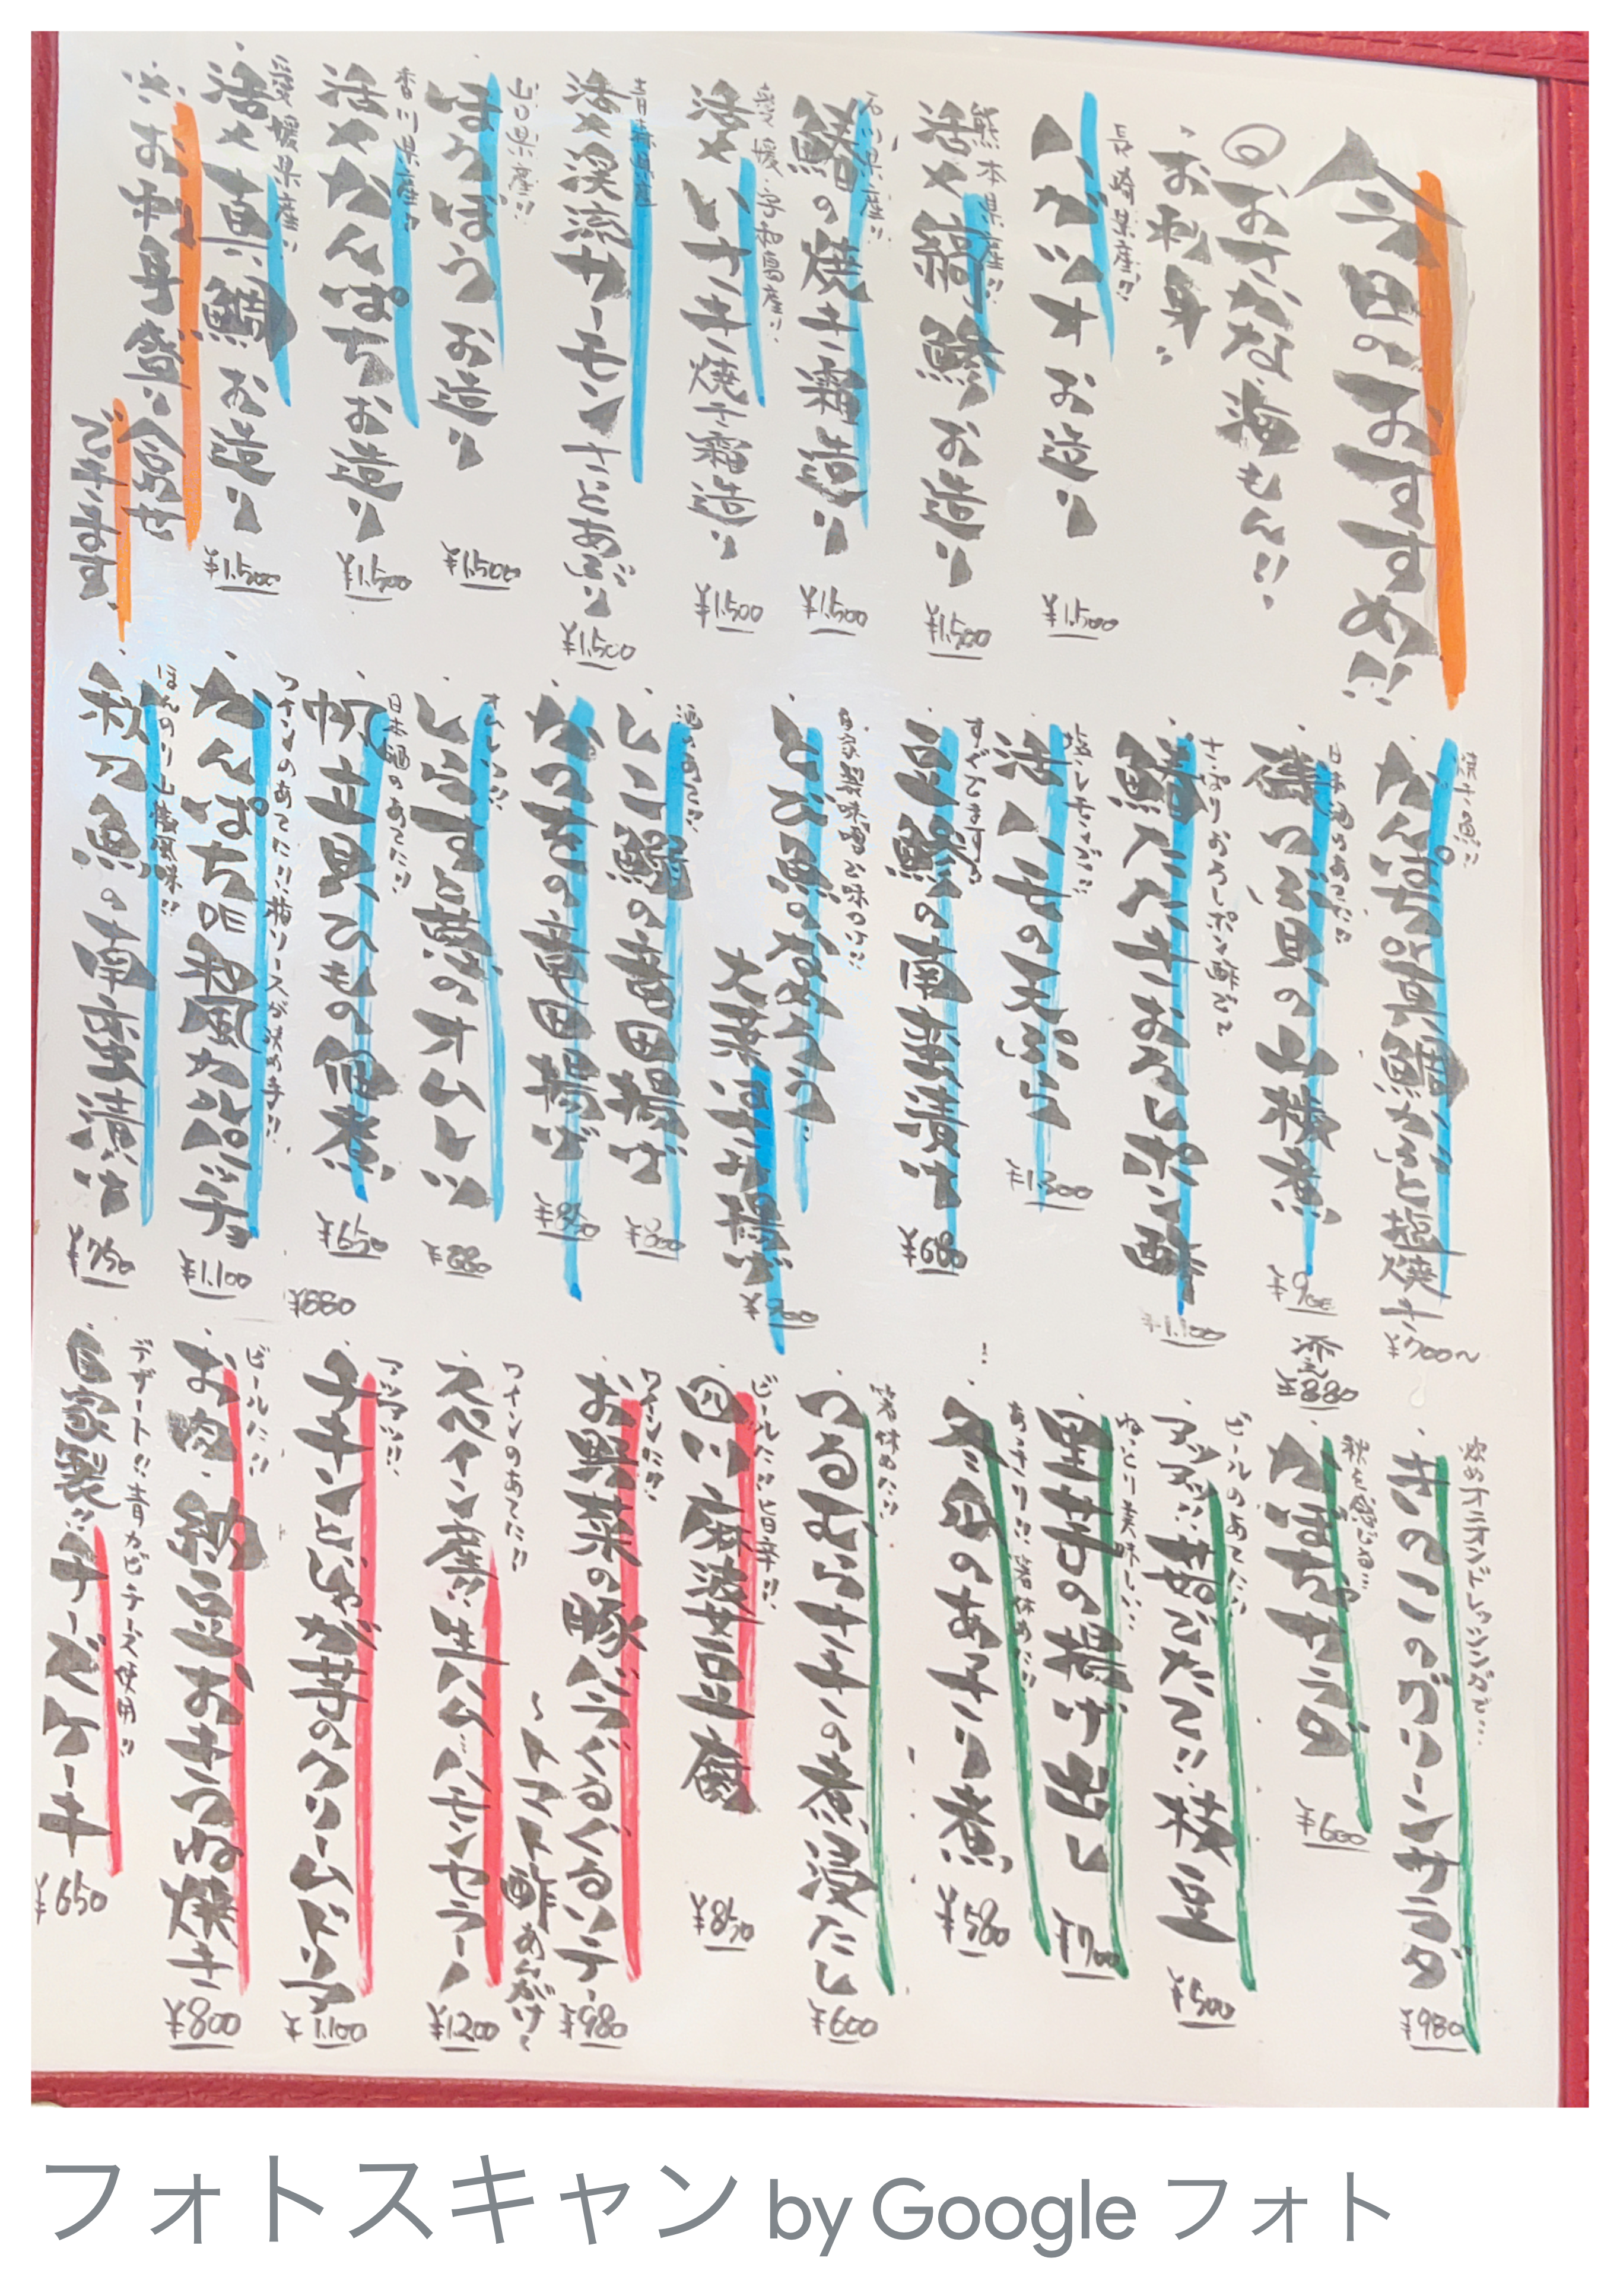 今日のおすすめ!!
◎おさかな海もん!!
・お刺身・
長崎県産!!
ハガツオお造り
¥1,500
熊本県産!!
活〆縞鯵お造り
¥1,500
石川県産!!
鰆の焼き霜造り
¥1,500
愛媛・宇和島産!!
活〆いさき焼き霜造り
¥1,500
青森県産
活〆渓流サーモンさっとあぶり
¥1,500
山口県産!!
ほうぼうお造り
¥1,500
香川県産!!
活〆かんぱちお造り
¥1,500
愛媛県産!!
活〆真鯛お造り
¥1,500
※お刺身盛り合わせ
できます。
焼き魚!!
かんぱちor真鯛かぶと塩焼き
¥700〜
日本酒のあてに!!
磯つぶ貝の山椒煮
¥900
さっぱりおろしポン酢で
鰆たたきおろしポン酢
¥1,100
塩レモンで!!
活ハモの天ぷら
¥1,300
すぐできます!!
豆鯵の南蛮漬け
¥680
自家製味噌で味つけ!!
とび魚のなめろう
大葉はさみ揚げ
酒のあてに!!
しこ鰯の竜田揚げ
¥800
かつおの竜田揚げ
¥850
オムレツ!!
しらすと葱のオムレツ
¥880
日本酒のあてに!!
帆立貝ひもの佃煮
¥650
ワインのあてに!!梅ソースが決め手!!
かんぱちDE和風カルパッチョ
¥1,100
ほんのり山椒風味!!
秋刀魚の南蛮漬け
¥750
炒めオニオンドレッシングで…
きのこのグリーンサラダ
¥980
秋を感じる…
かぼちゃサラダ
¥600
ビールのあてに!!
アツアツ!!茹でたて!!枝豆
¥500
ねっとり美味しい…
里芋の揚げ出し
¥700
あっさり!!箸休めに!!
冬瓜のあっさり煮
¥580
箸休めに!!
つるむらさきの煮浸たし
¥600
ビールに!!旨辛!!
四川麻婆豆腐
¥850
ワインに!!
お野菜の豚バラぐるぐるソテー
〜トマト酢あんがけ〜
¥980
ワインのあてに!!
スペイン産!!生ハム ハモンセラーノ
¥1200
アツアツ!!
チキンとじゃが芋のクリームドリア
¥1,100
ビールに!!
お肉・納豆おきつね焼き
¥800
デザート!!青カビチーズ使用!!
自家製!!チーズケーキ
¥650
フォトスキャン by Google フォト